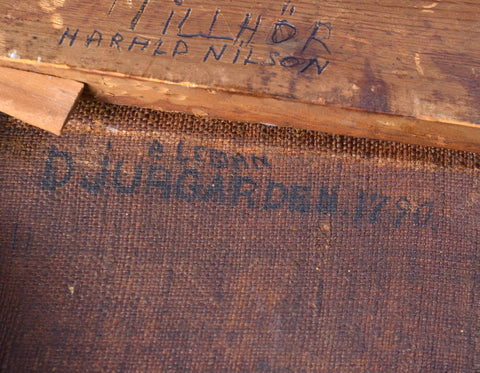 TILLHÖR
HARALD NILSON
A LEIBAN
DJURGARDEN. 1790.